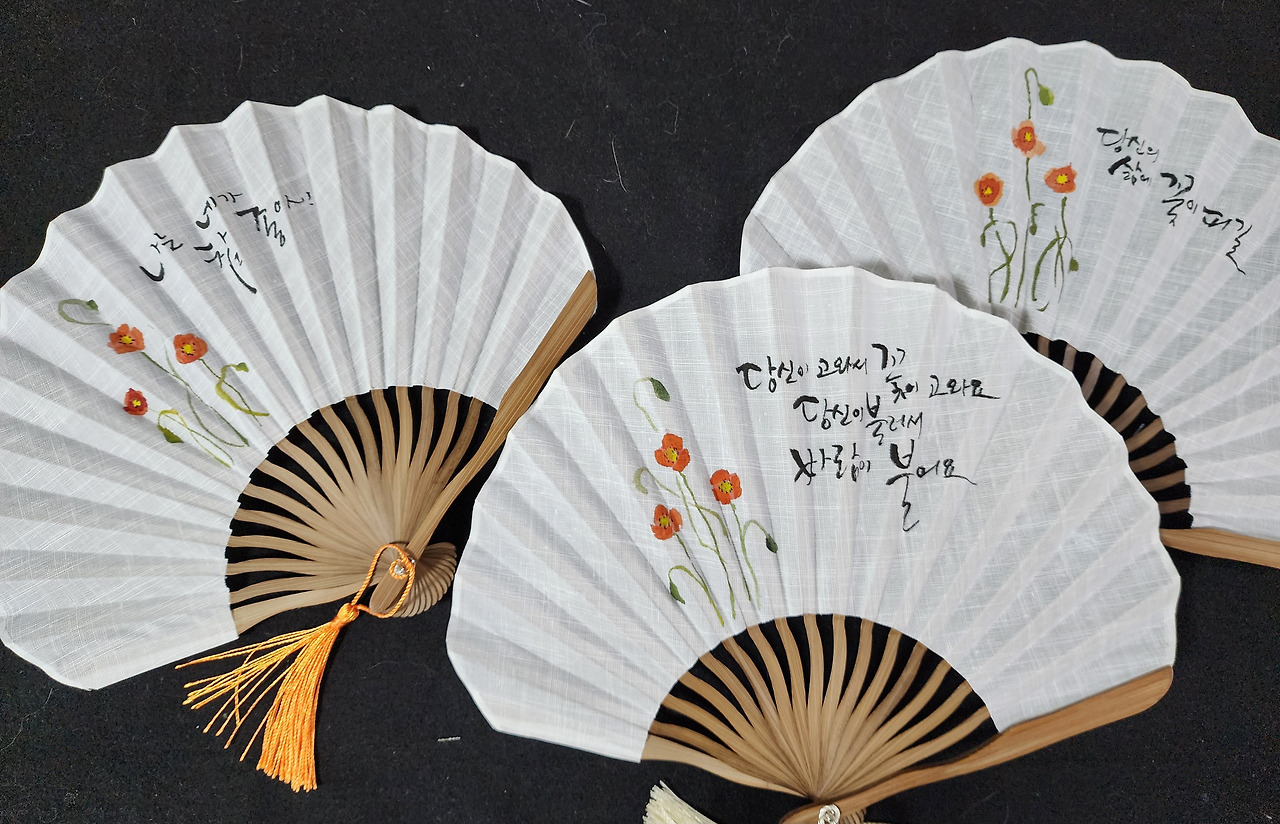 나는 네가
당신이 고와서 꽃이 고와요
당신이 불러서
바람이 불어요
당신의
삶에 꽃이 피길